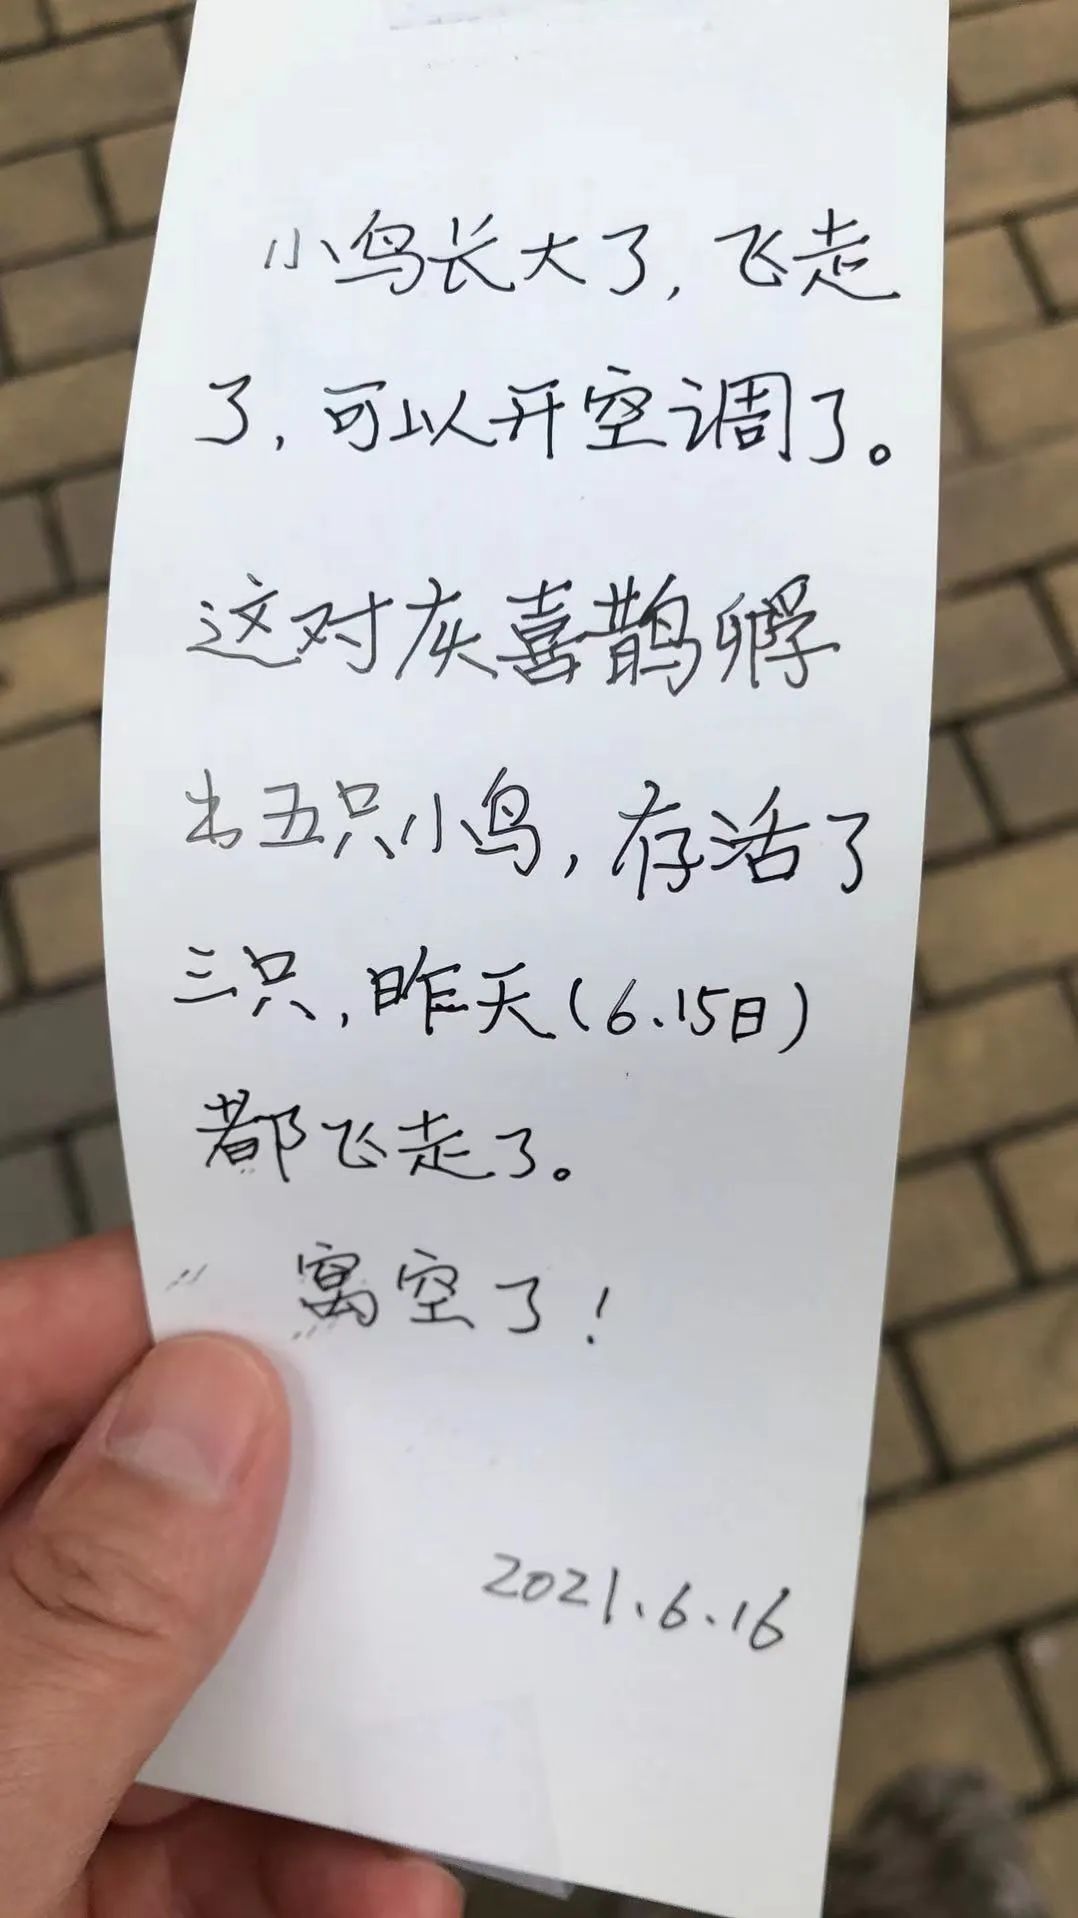 小鸟长大了,飞走
了,可以开空调了。
这对灰喜鹊孵
出五只小鸟,存活了
三只,昨天(6.15日)
都飞走了。
窝空了!
2021.6.16